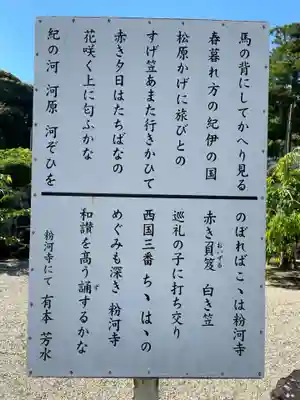 馬の背にしてかへり見る
春暮れ方の紀伊の国
松原かげに旅びとの
すげ笠あまた行きかひて
赤き夕日はたちばなの
花咲く上に匂ふかな
紀の河 河原 河ぞひを
のぼればこゝは粉河寺
赤き負笈 白き笠
おいずる
巡礼の子に打ち交り
西国三番 ちゝはゝの
めぐみも深き 粉河寺
和讃を高う誦するかな
ず
粉河寺にて 有本 芳水